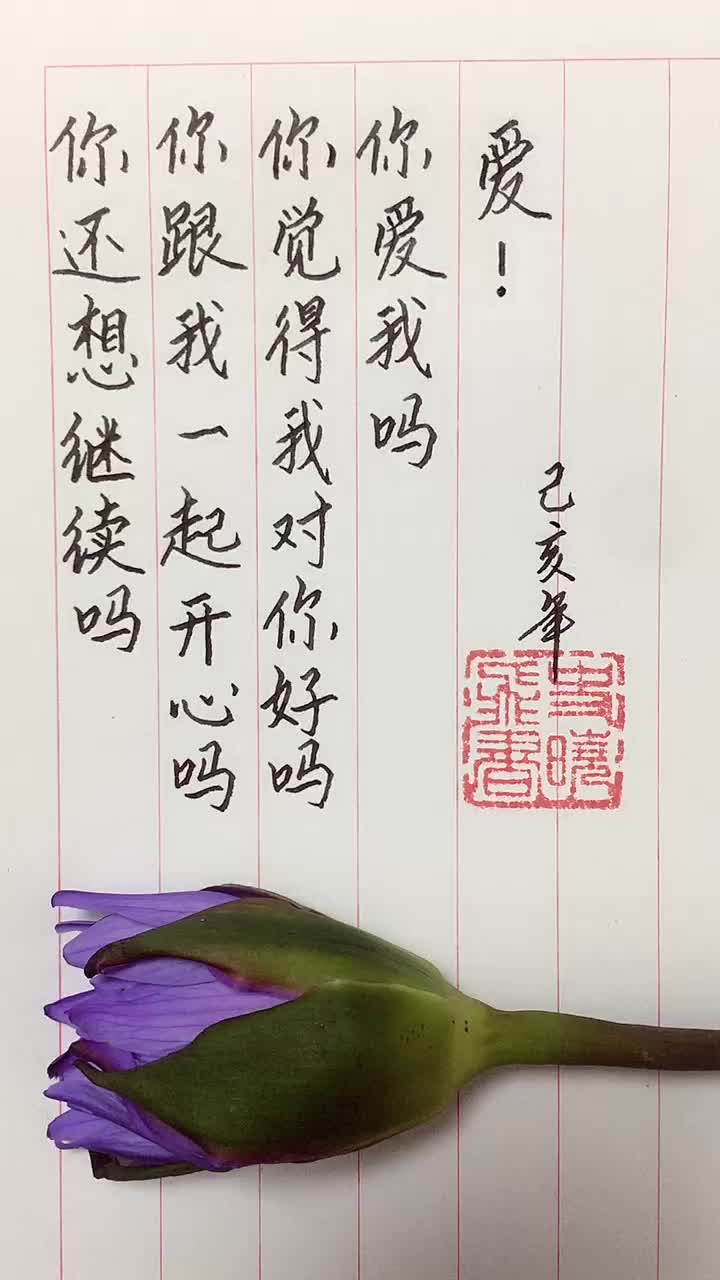 你还想继续吗
你跟我一起开心吗
你觉得我对你好吗
你爱我吗
爱！
己亥年